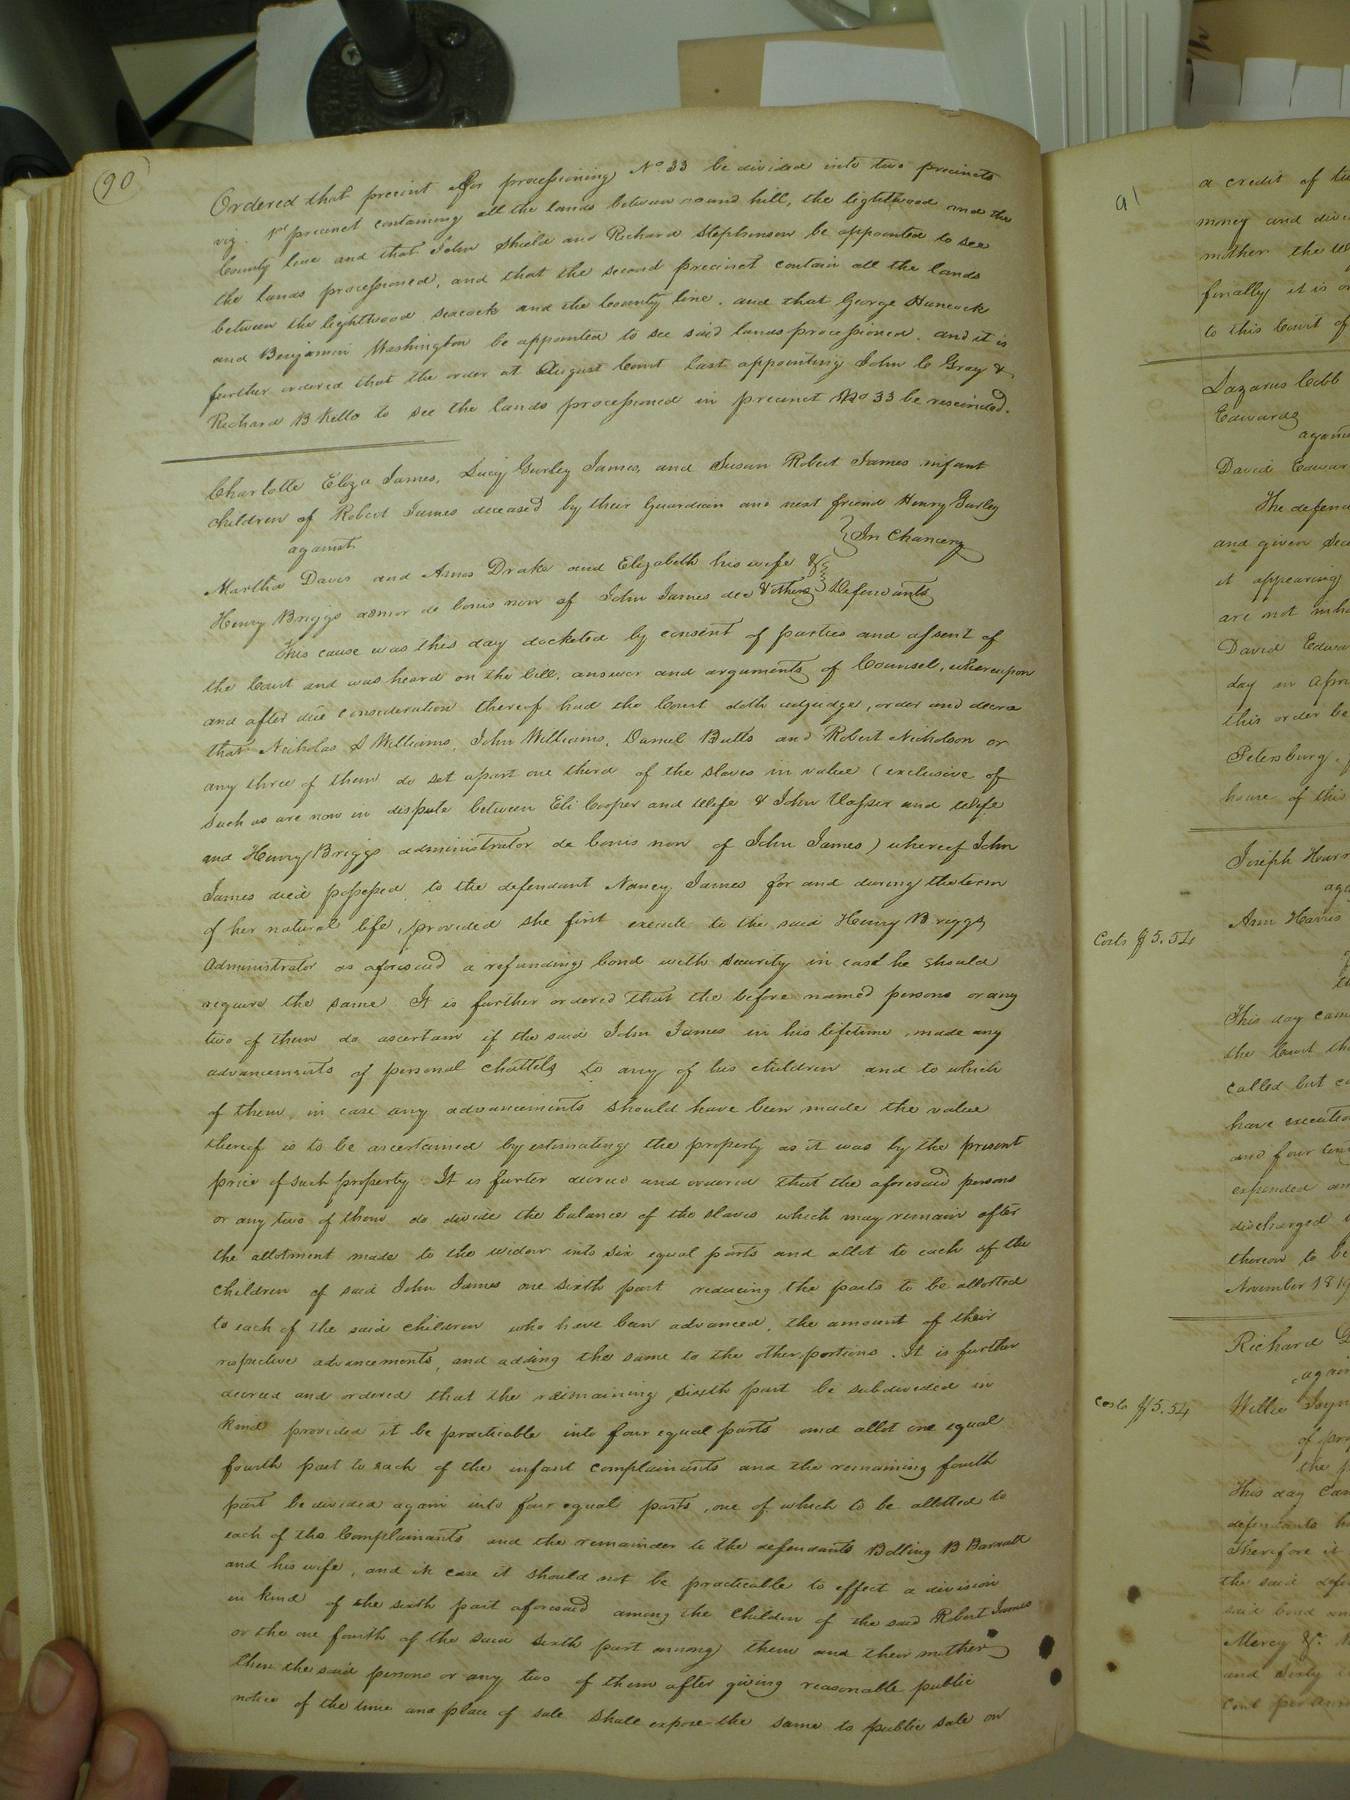 90
Ordered that precinct for processioning No 33 be divided into two precincts
viz. 1st precinct containing all the lands between round hill, the lightwood and the
County line and that John Shield and Richard Stephenson be appointed to see
the lands processioned, and that the second precinct contain all the lands
between the lightwood seacock and the County line. and that George Hancock
and Benjamin Washington be appointed to see said lands processioned. and it is
further ordered that the order at August Court last appointing John C Gray &
Richard B Kello to see the lands processioned in precinct No 33 be rescinded.
Charlotte Eliza James, Lucy Gurley James, and Susan Robert James infant
children of Robert James deceased by their Guardian and next friend Henry Gurley
against
In Chancery
Martha Davis and Amos Drake and Elizabeth his wife &
Henry Briggs admor de bonis non of John James dec & others Defendants
This cause was this day docketed by consent of parties and assent of
the Court and was heard on the bill, answer and arguments of Counsel, whereupon
and after due consideration thereof had the Court doth adjudge, order and decree
that Nicholas S Williams, John Williams, Daniel Butts and Robert Nicholson or
any three of them do set apart one third of the slaves in value (exclusive of
such as are now in dispute between Eli Cooper and Wife & John Vasser and Wife
and Henry Briggs administrator de bonis non of John James) whereof John
James died possessed, to the defendant Nancy James for and during the term
of her natural life, provided she first execute to the said Henry Briggs
Administrator as aforesaid a refunding bond with security in case he should
require the same. It is further ordered that the before named persons or any
two of them do ascertain if the said John James in his lifetime, made any
advancements of personal chattels to any of his children and to which
of them, in case any advancements should have been made the value
thereof is to be ascertained by estimating the property as it was by the present
price of such property. It is furter decreed and ordered that the aforesaid persons
or any two of them do divide the balance of the slaves which may remain after
the allotment made to the widow into six equal parts and allot to each of the
children of said John James one sixth part reducing the parts to be allotted
to each of the said children who have been advanced, the amount of their
respective advancements, and adding the same to the other portions. It is further
decreed and ordered that the remaining sixth part be subdivided in
kind provided it be practicable into four equal parts and allot one equal
fourth part to each of the infant complainants and the remaining fourth
part be divided again into four equal parts, one of which to be allotted to
each of the Complainants and the remainder to the defendants Bolling B Barrett
and his wife, and in case it should not be practicable to effect a division
in kind of the sixth part aforesaid among the Children of the said Robert James
or the one fourth of the said sixth part among them and their mother
then the said persons or any two of them after giving reasonable public
notice of the time and place of sale shall expose the same to public sale on
91
a credit of
money and
mother the
finally it is
to this Court of
Lazarus Cobb
Edwards
David
The
and given
it appearing
are not
David
day in
this order be
Petersburg
house of this
Joseph
Costs $5.54
Ann Harris
This day
the Court
called but
have
and four
expended
discharged
thereon to be
November
Richard
Costs $5.54
Willie
of
the
This day
Therefore it
the said
said bond
Mercy &c.
and sixty
Cent per